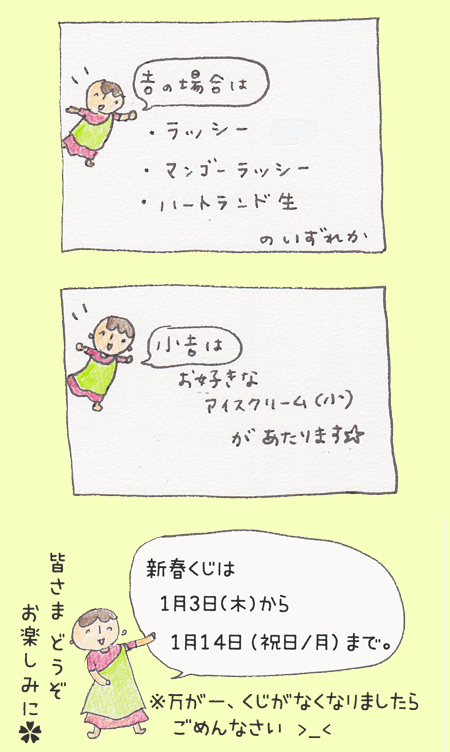 吉の場合は
・ラッシー
・マンゴーラッシー
・ハートランド生
のいずれか
小吉は
お好きな
アイスクリーム(小)
があたります☆
新春くじは
1月3日(木)から
1月14日(祝日/月)まで。
※万が一、くじがなくなりましたら
ごめんなさい >_<
皆さま どうぞ
お楽しみに✿